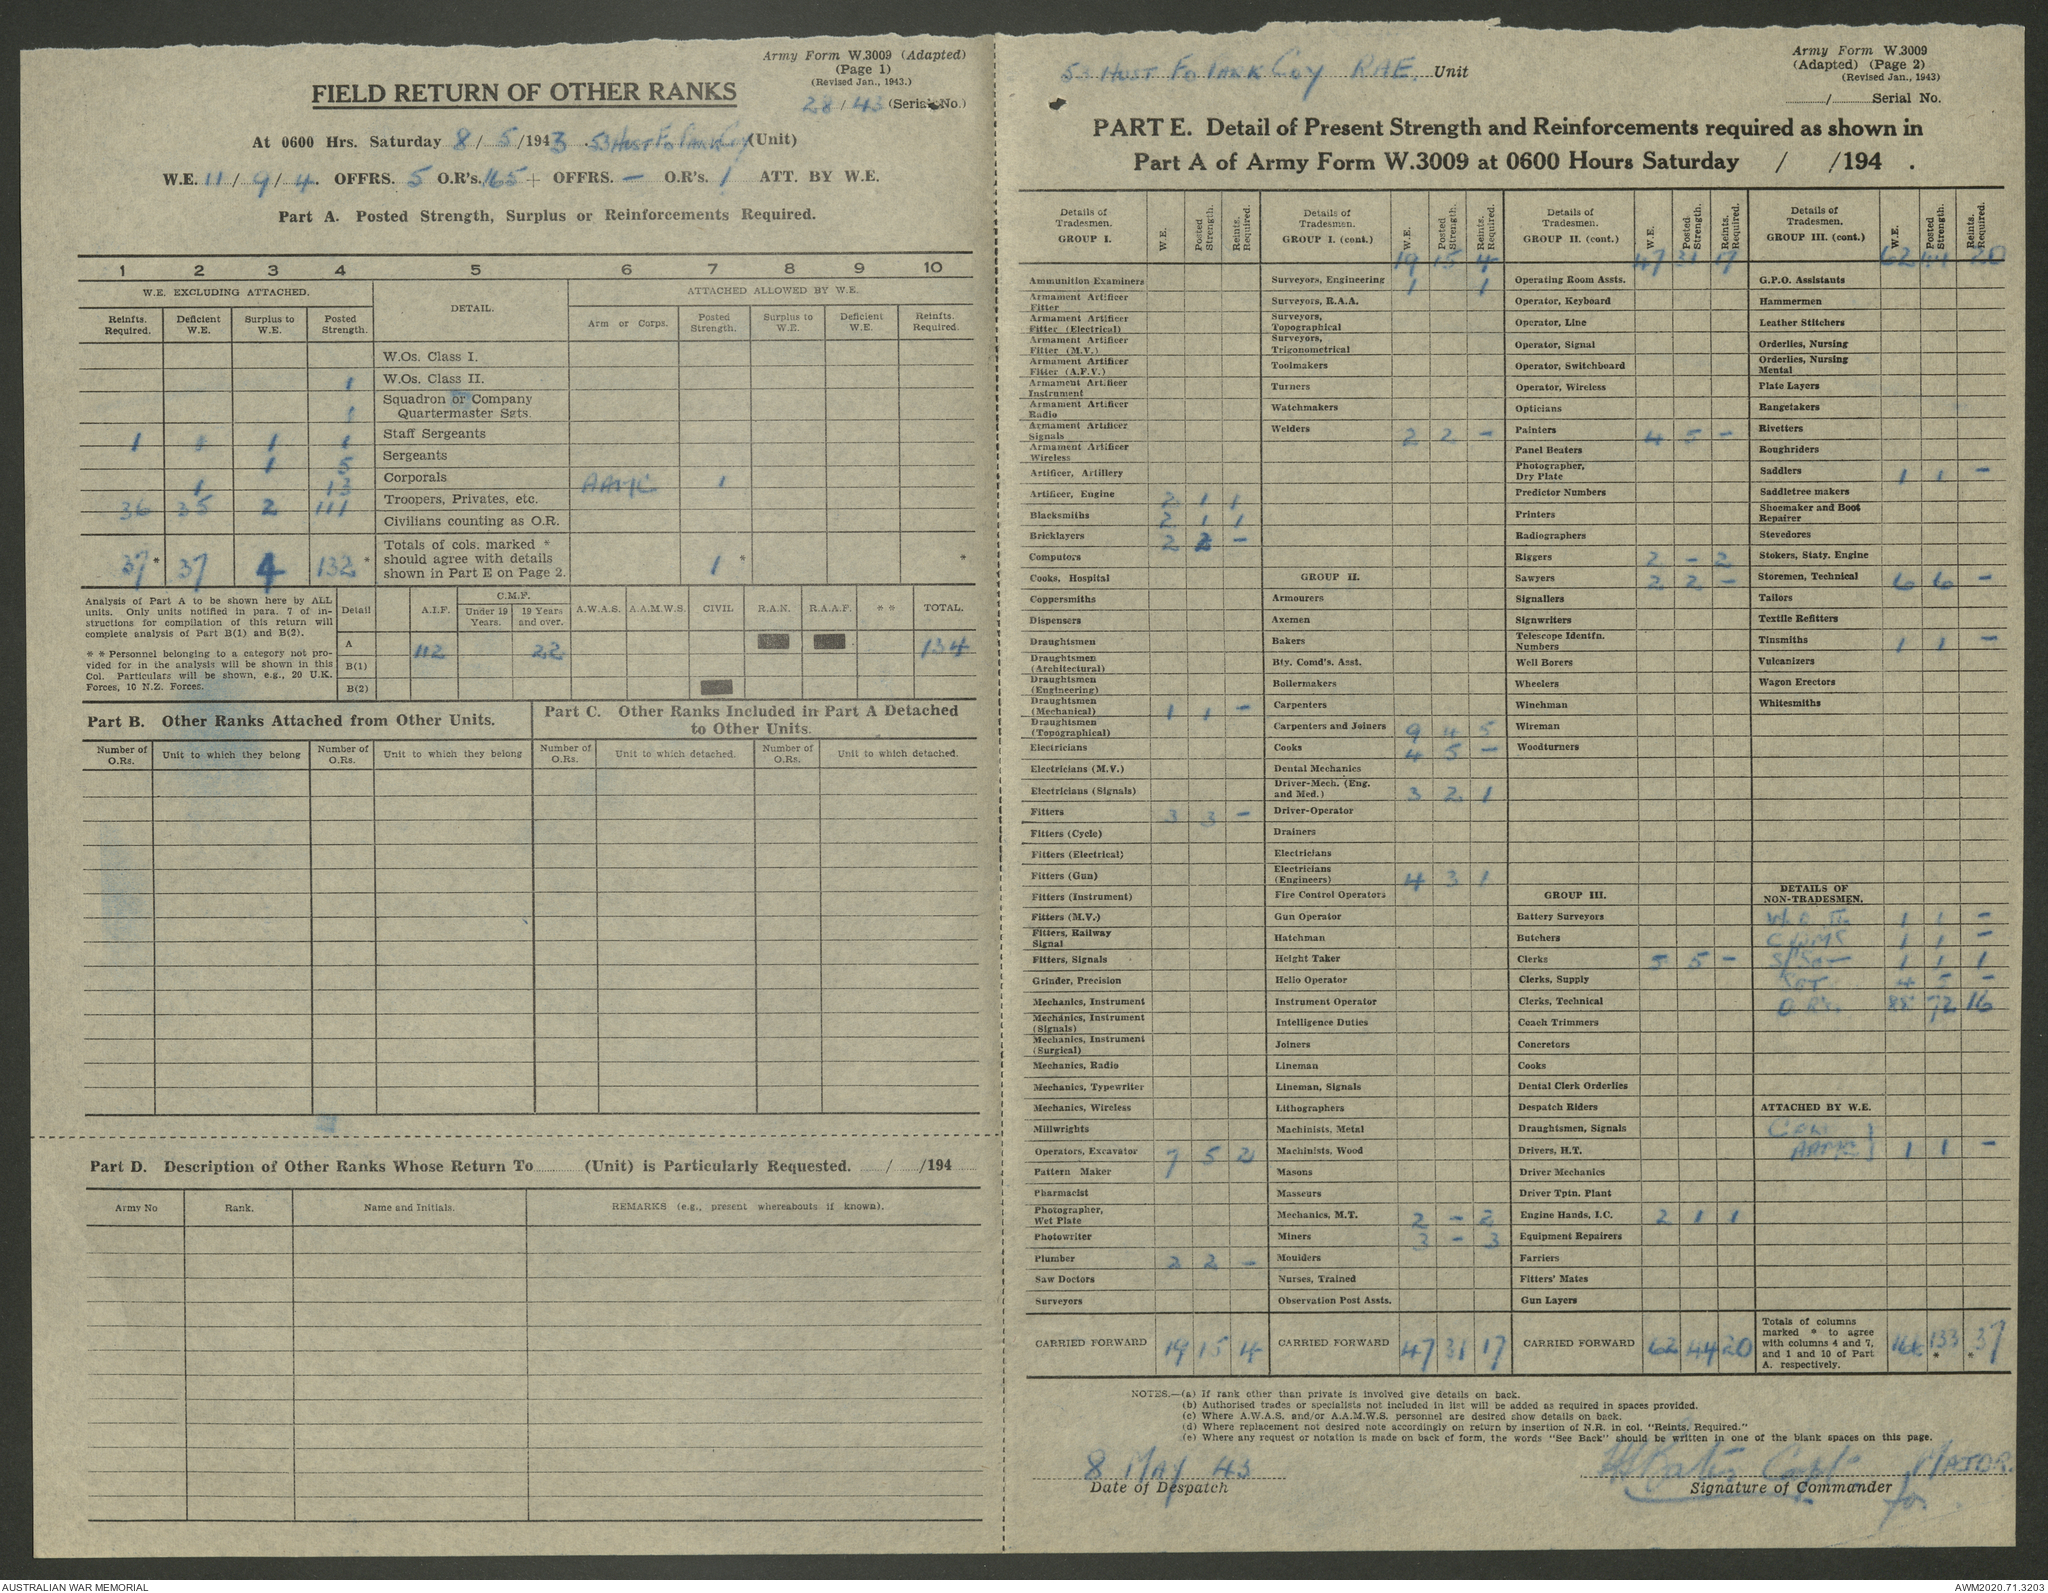 Army Form W.3009 (Adapted)
(Page 1)
(Revised Jan., 1943.)
28/43 (Serial No.)
FIELD RETURN OF OTHER RANKS
At 0600 Hrs. Saturday 8/5/1943 53 Aust Fd Park Coy (Unit)
W.E. 11/9/4. OFFRS. 5 O.R's. 165 + OFFRS. — O.R's. 1 ATT. BY W.E.
Part A. Posted Strength, Surplus or Reinforcements Required.
1 2 3 4 5 6 7 8 9 10
W.E. EXCLUDING ATTACHED. DETAIL. ATTACHED ALLOWED BY W.E.
Reinfts. Required. Deficient W.E. Surplus to W.E. Posted Strength. Arm or Corps. Posted Strength. Surplus to W.E. Deficient W.E. Reinfts. Required.
W.Os. Class I.
1 W.Os. Class II.
1 Squadron or Company Quartermaster Sgts.
1 1 1 Staff Sergeants
1 5 Sergeants
1 13 Corporals AAMC 1
36 35 2 111 Troopers, Privates, etc.
Civilians counting as O.R.
37 * 37 4 132 * Totals of cols. marked * should agree with details shown in Part E on Page 2. 1 * *
Analysis of Part A to be shown here by ALL units. Only units notified in para. 7 of instructions for compilation of this return will complete analysis of Part B(1) and B(2).
* * Personnel belonging to a category not provided for in the analysis will be shown in this Col. Particulars will be shown, e.g., 20 U.K. Forces, 10 N.Z. Forces.
Detail A.I.F. C.M.F. Under 19 Years. 19 Years and over. A.W.A.S. A.A.M.W.S. CIVIL R.A.N. R.A.A.F. * * TOTAL.
A 112 22 134
B(1)
B(2)
Part B. Other Ranks Attached from Other Units.
Part C. Other Ranks Included in Part A Detached to Other Units.
Number of O.Rs. Unit to which they belong Number of O.Rs. Unit to which they belong Number of O.Rs. Unit to which detached. Number of O.Rs. Unit to which detached.
Part D. Description of Other Ranks Whose Return To (Unit) is Particularly Requested. / /194
Army No Rank. Name and Initials. REMARKS (e.g., present whereabouts if known).
53 Aust Fd Park Coy RAE. Unit
Army Form W.3009
(Adapted) (Page 2)
(Revised Jan., 1943)
/ Serial No.
PART E. Detail of Present Strength and Reinforcements required as shown in
Part A of Army Form W.3009 at 0600 Hours Saturday / /194 .
Details of Tradesmen. GROUP I. W.E. Posted Strength. Reints. Required.
Ammunition Examiners
Armament Artificer Fitter
Armament Artificer Fitter (Electrical)
Armament Artificer Fitter (M.V.)
Armament Artificer Fitter (A.F.V.)
Armament Artificer Instrument
Armament Artificer Radio
Armament Artificer Signals
Armament Artificer Wireless
Artificer, Artillery
Artificer, Engine 2 1 1
Blacksmiths 2 1 1
Bricklayers 2 2 —
Computors
Cooks, Hospital
Coppersmiths
Dispensers
Draughtsmen
Draughtsmen (Architectural)
Draughtsmen (Engineering)
Draughtsmen (Mechanical) 1 1 —
Draughtsmen (Topographical)
Electricians
Electricians (M.V.)
Electricians (Signals)
Fitters 3 3 —
Fitters (Cycle)
Fitters (Electrical)
Fitters (Gun)
Fitters (Instrument)
Fitters (M.V.)
Fitters, Railway Signal
Fitters, Signals
Grinder, Precision
Mechanics, Instrument
Mechanics, Instrument (Signals)
Mechanics, Instrument (Surgical)
Mechanics, Radio
Mechanics, Typewriter
Mechanics, Wireless
Millwrights
Operators, Excavator 7 5 2
Pattern Maker
Pharmacist
Photographer, Wet Plate
Photowriter
Plumber 2 2 —
Saw Doctors
Surveyors
CARRIED FORWARD 19 15 4
Details of Tradesmen. GROUP I. (cont.) W.E. Posted Strength. Reints. Required.
19 15 4
Surveyors, Engineering 1 1
Surveyors, R.A.A.
Surveyors, Topographical
Surveyors, Trigonometrical
Toolmakers
Turners
Watchmakers
Welders 2 2 —
GROUP II.
Armourers
Axemen
Bakers
Bty. Comd's. Asst.
Boilermakers
Carpenters
Carpenters and Joiners 9 4 5
Cooks 4 5 —
Dental Mechanics
Driver-Mech. (Eng. and Med.) 3 2 1
Driver-Operator
Drainers
Electricians
Electricians (Engineers) 4 3 1
Fire Control Operators
Gun Operator
Hatchman
Height Taker
Helio Operator
Instrument Operator
Intelligence Duties
Joiners
Lineman
Lineman, Signals
Lithographers
Machinists, Metal
Machinists, Wood
Masons
Masseurs
Mechanics, M.T. 2 — 2
Miners 3 — 3
Moulders
Nurses, Trained
Observation Post Assts.
CARRIED FORWARD 47 31 17
Details of Tradesmen. GROUP II. (cont.) W.E. Posted Strength. Reints. Required.
47 31 17
Operating Room Assts.
Operator, Keyboard
Operator, Line
Operator, Signal
Operator, Switchboard
Operator, Wireless
Opticians
Painters 4 5 —
Panel Beaters
Photographer, Dry Plate
Predictor Numbers
Printers
Radiographers
Riggers 2 — 2
Sawyers 2 2 —
Signallers
Signwriters
Telescope Identfn. Numbers
Well Borers
Wheelers
Winchman
Wireman
Woodturners
GROUP III.
Battery Surveyors
Butchers
Clerks 5 5 —
Clerks, Supply
Clerks, Technical
Coach Trimmers
Concretors
Cooks
Dental Clerk Orderlies
Despatch Riders
Draughtsmen, Signals
Drivers, H.T.
Driver Mechanics
Driver Tptn. Plant
Engine Hands, I.C. 2 1 1
Equipment Repairers
Farriers
Fitters' Mates
Gun Layers
CARRIED FORWARD 62 44 20
Details of Tradesmen. GROUP III. (cont.) W.E. Posted Strength. Reints. Required.
62 44 20
G.P.O. Assistants
Hammermen
Leather Stitchers
Orderlies, Nursing
Orderlies, Nursing Mental
Plate Layers
Rangetakers
Rivetters
Roughriders
Saddlers 1 1 —
Saddletree makers
Shoemaker and Boot Repairer
Stevedores
Stokers, Staty. Engine
Storemen, Technical 6 6 —
Tailors
Textile Refitters
Tinsmiths 1 1 —
Vulcanizers
Wagon Erectors
Whitesmiths
DETAILS OF NON-TRADESMEN.
W.O. II 1 1 —
CQMS 1 1 —
S/Sgt 1 1 1
Sgt 4 5 —
O.R's. 88 72 16
ATTACHED BY W.E.
AAMC 1 1 —
Totals of columns marked * to agree with columns 4 and 7, and 1 and 10 of Part A. respectively. 166 133 * * 37
NOTES.—(a) If rank other than private is involved give details on back.
(b) Authorised trades or specialists not included in list will be added as required in spaces provided.
(c) Where A.W.A.S. and/or A.A.M.W.S. personnel are desired show details on back.
(d) Where replacement not desired note accordingly on return by insertion of N.R. in col. "Reints. Required."
(e) Where any request or notation is made on back of form, the words "See Back" should be written in one of the blank spaces on this page.
8 MAY 43
Date of Despatch
Capt MAJOR.
Signature of Commander
for
AUSTRALIAN WAR MEMORIAL
AWM2020.71.3203